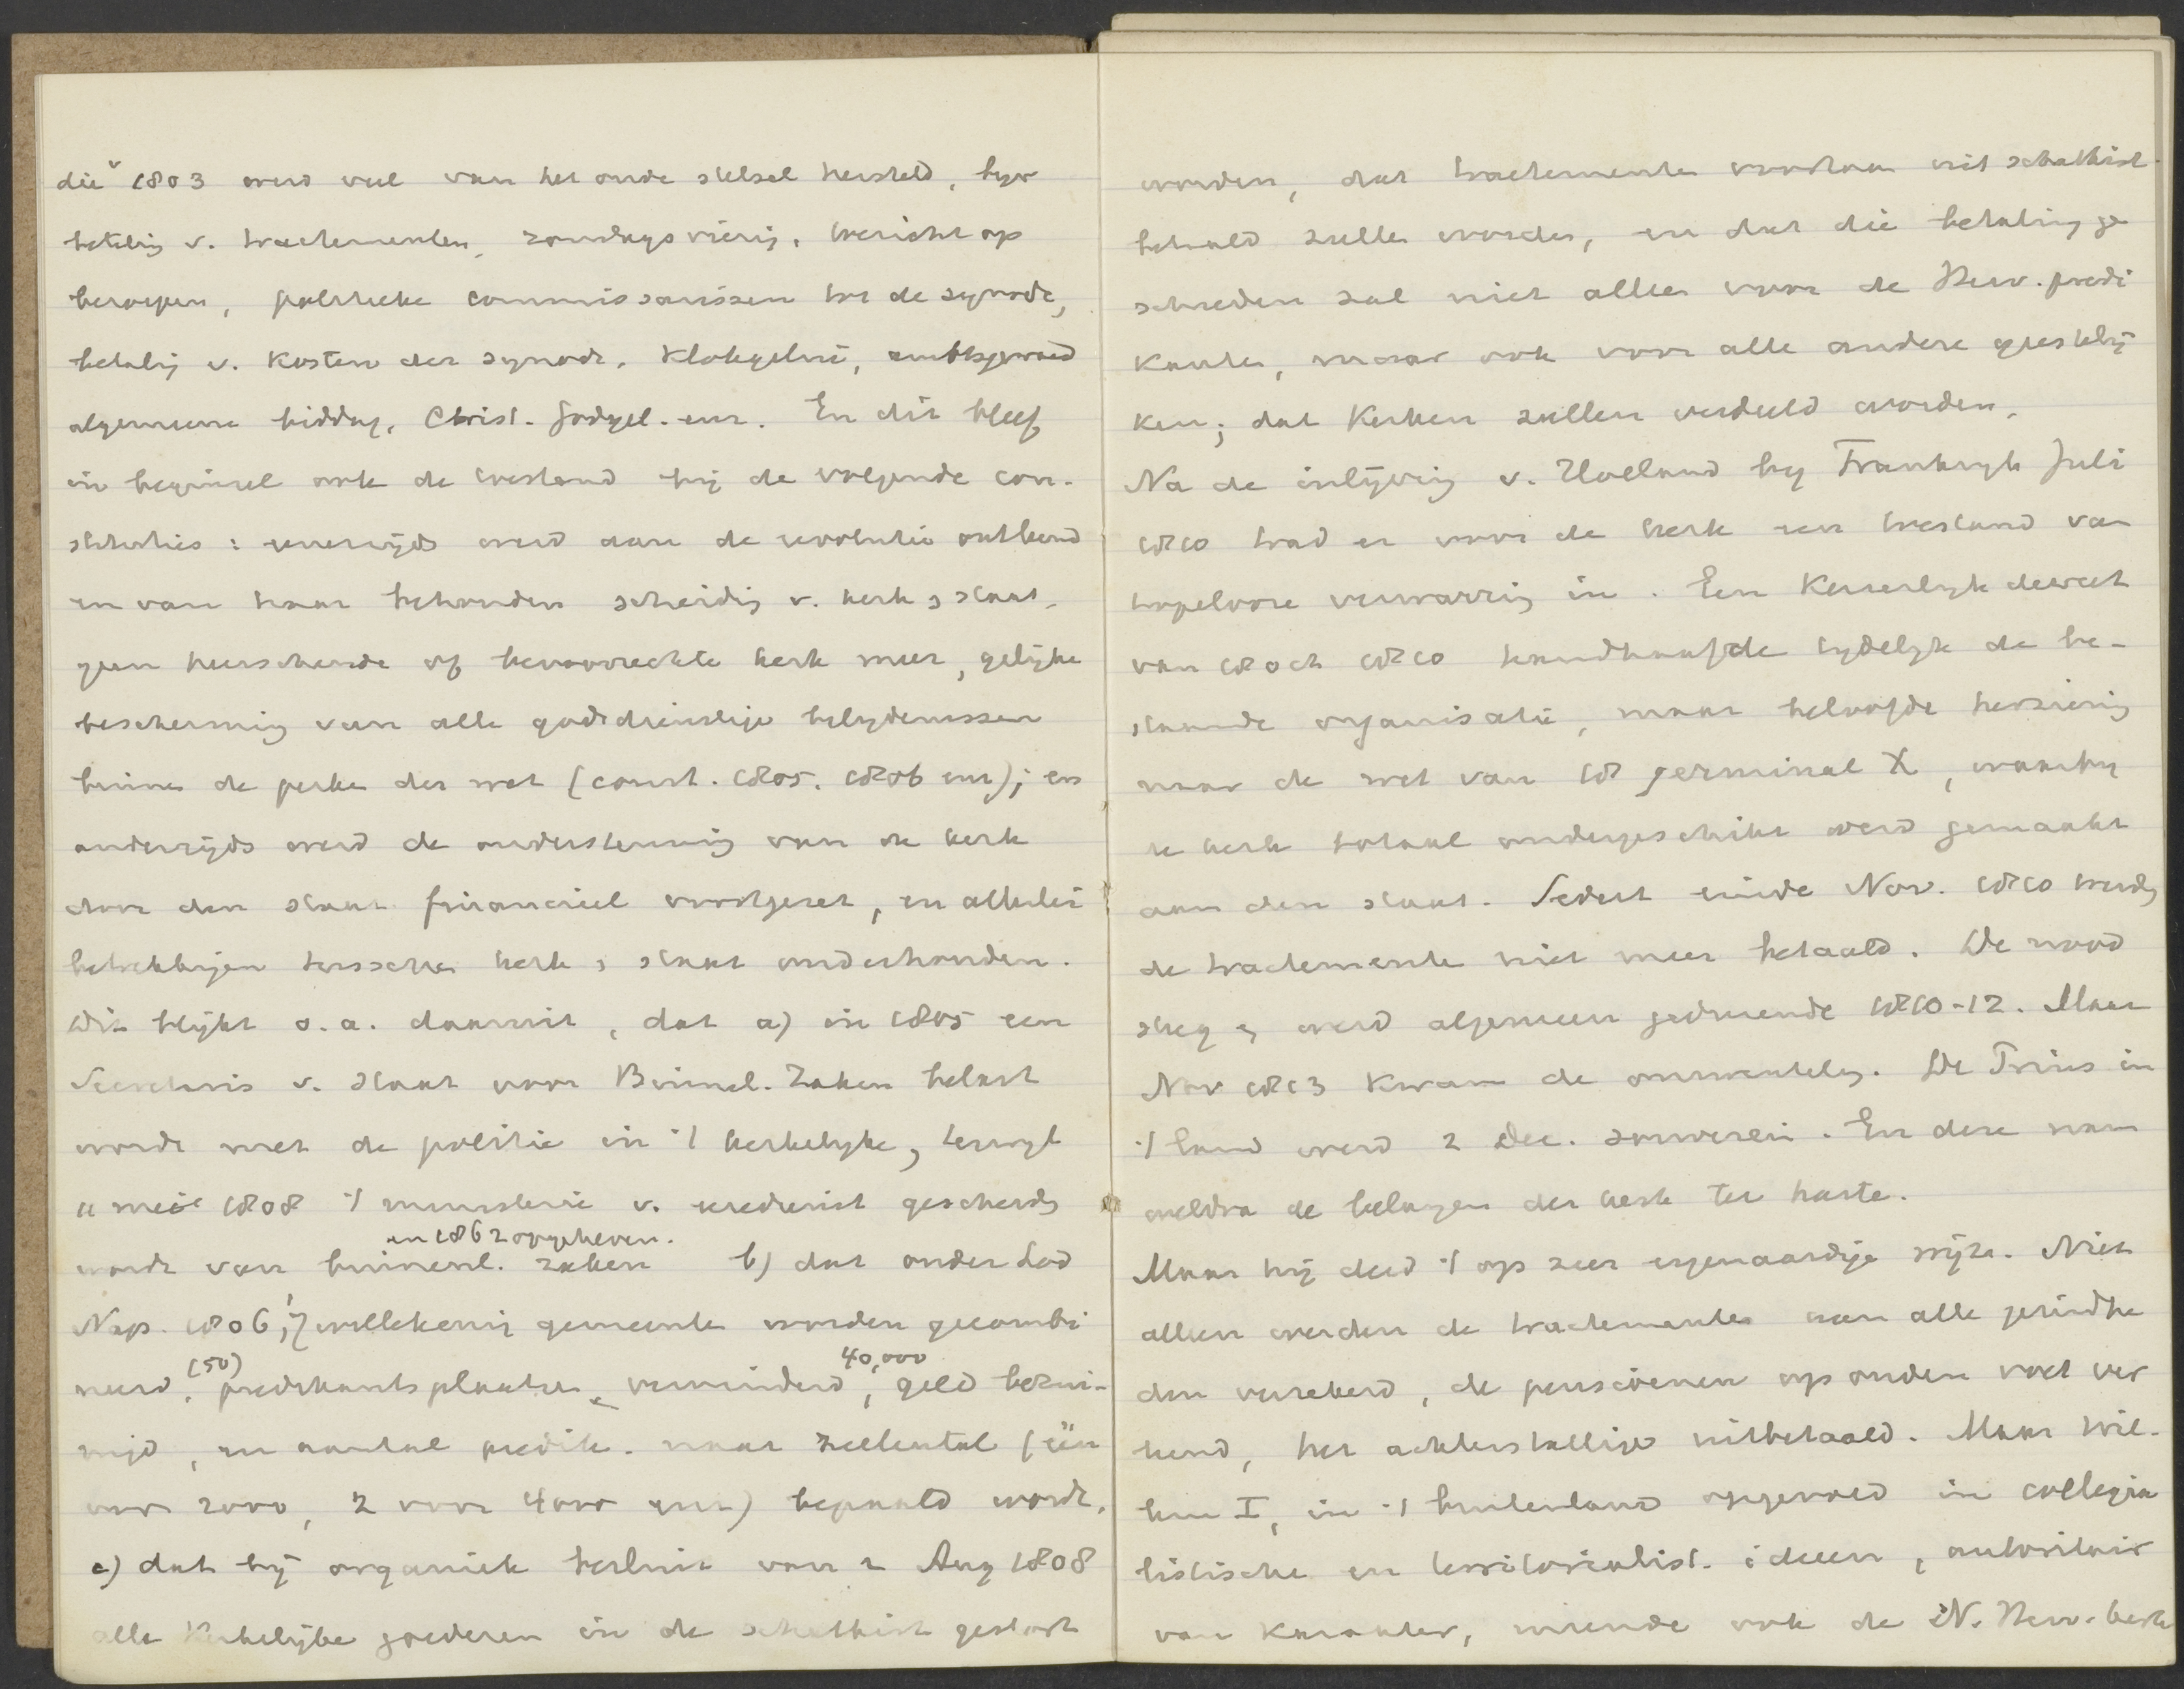 die v 1803 werd veel van het oude stelsel hersteld, bijv
betaling v. tractementen, zondagsviering, toezicht op
beroepen, politieke commissarissen tot de synode,
betaling v. kosten der synode. klokgelui, ambtsgewaad
algemeene biddag, Christ. godgel. enz. En dit bleef
in beginsel ook de toestand bij de volgende con-
stituties: eenerzijds werd aan de revolutie ontleend
en van haar behouden scheiding v. kerk & staat,
geen heerschende of bevoorrechte kerk meer, gelijke
bescherming van alle godsdienstige belijdenissen
binnen de perken der wet (const. 1805. 1806 enz); en
anderzijds werd de ondersteuning van de kerk
door den staat financieel voortgezet, en allerlei
betrekkingen tusschen kerk & staat onderhouden.
Dit blijkt o.a. daaruit, dat a) in 1805 een
Secretaris v. Staat voor Binnel. Zaken belast
wordt met de politie in 't kerkelijke, terwijl
in 1808 't ministerie v. eredienst gescheiden
en 1862 opgeheven.
wordt van binnenl. zaken b) dat onder Lod
Nap. 1806, 7 gemeenten worden gecombi
(50) 40,000
neerd, predikantsplaatsen verminderd, geld bezui-
nigd, en aantal predik. naar zielental (één
voor 2000, 2 voor 4000 enz) bepaald wordt,
c) dat bij organiek besluit van 2 Aug 1808
alle kerkelijke goederen in de schatkist gestort
worden, dat tractementen voortaan uit schatkist
betaald zullen worden, en dat die betaling ge
schieden zal niet alleen voor de Herv. predi
kanten, maar ook voor alle andere geestelij
ken; dat kerken zullen verdeeld worden.
Na de inlijving v. Holland bij Frankrijk Juli
1810 trad er voor de kerk een toestand van
hopelooze verwarring in. Een Keizerlijk decreet
van 18 Oct 1810 handhaafde tijdelijk de be-
staande organisatie, maar beloofde herziening
naar de wet van 18 germinal X, waarbij
de kerk totaal ondergeschikt werd gemaakt
aan den staat. Sedert einde Nov. 1810 werden
de tractementen niet meer betaald. De nood
steeg & werd algemeen gedurende 1810-12. Maar
Nov 1813 kwam de omwenteling. De Prins in
't land werd 2 Dec. souverein. En deze nam
weldra de belangen der kerk ter harte.
Maar hij deed 't op zeer eigenaardige wijze. Niet
alleen werden de tractementen van alle gezindhe
den verzekerd, de pensioenen op ouden voet ver
leend, het achterstallige uitbetaald. Maar Wil-
lem I, in 't buitenland opgevoed in collegia
listische en territorialist. ideeen, autoritair
van karakter, wilde ook de N. Herv. kerk